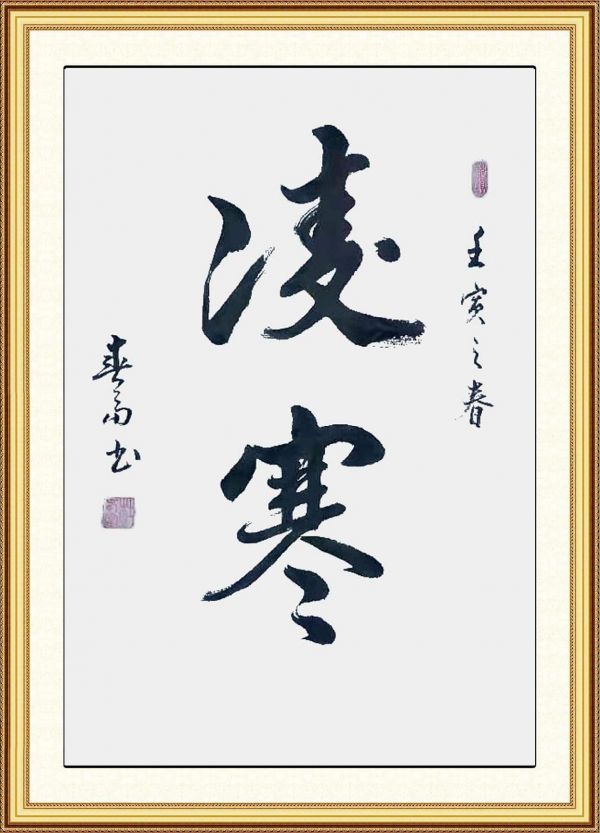 壬寅之春
凌寒
春富书